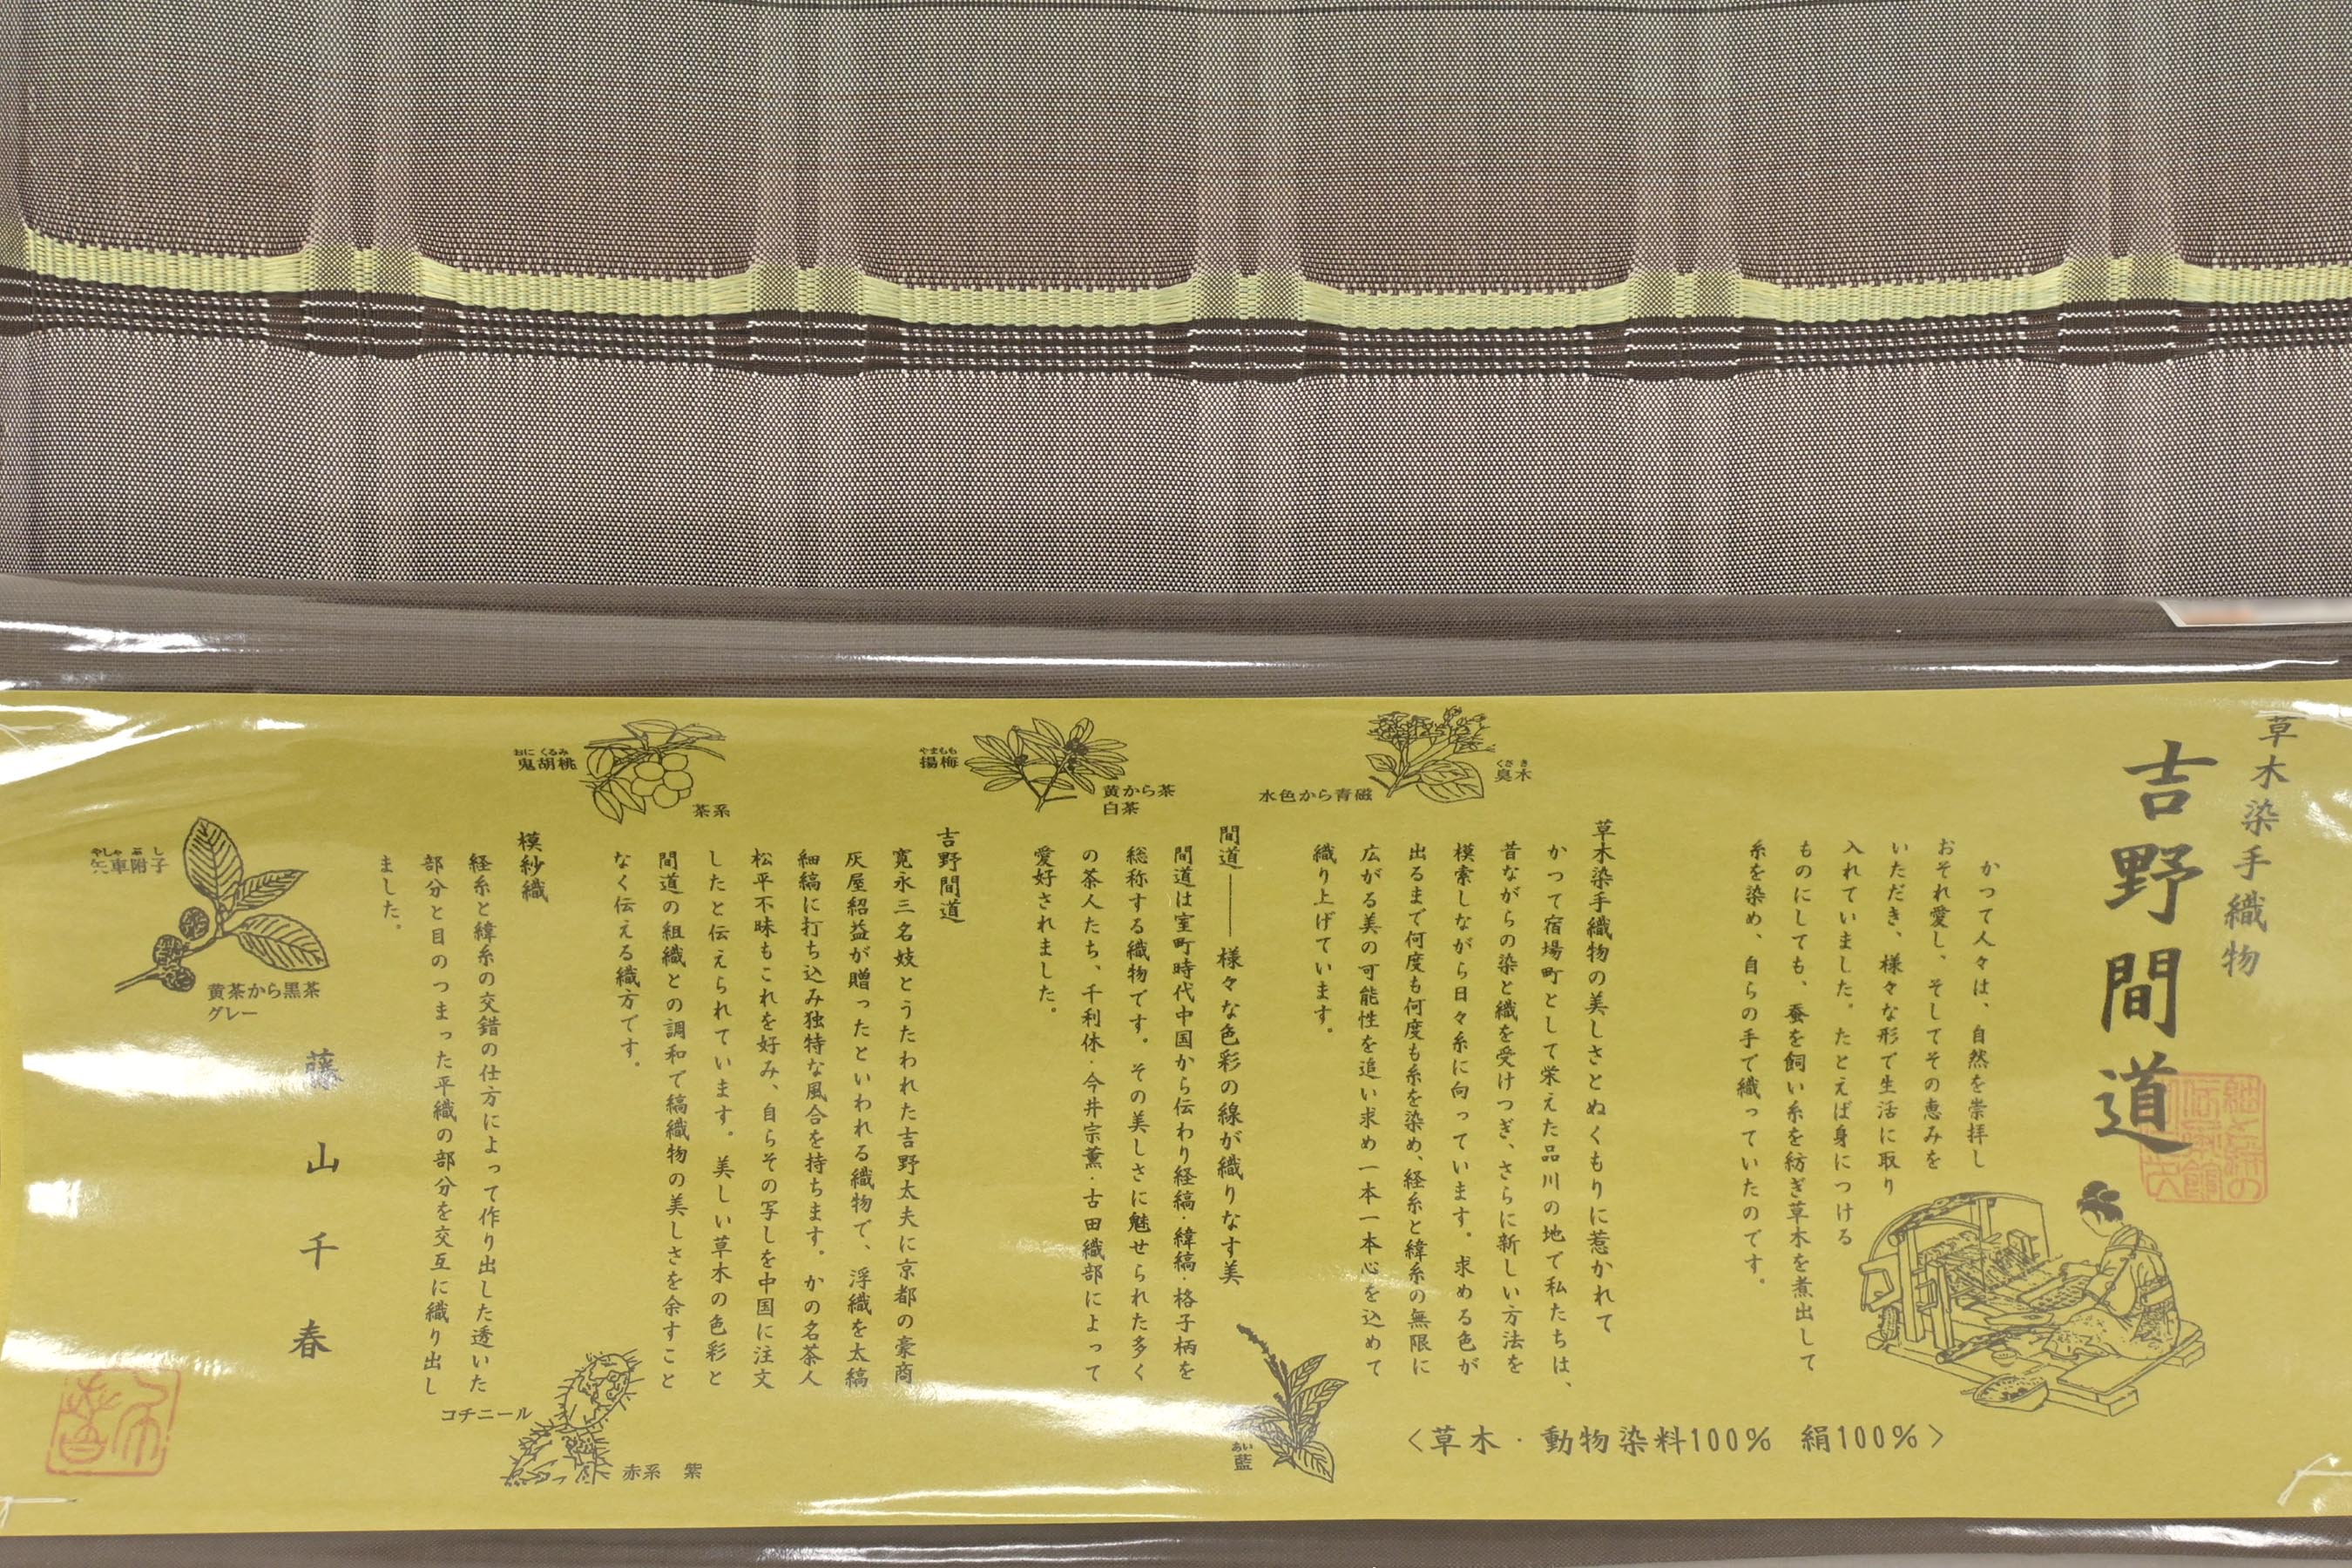 草木染手織物
吉野間道
かつて人々は、自然を崇拝し
おそれ愛し、そしてその恵みを
いただき、様々な形で生活に取り
入れていました。たとえば身につける
ものにしても、蚕を飼い糸を紡ぎ草木を煮出して
糸を染め、自らの手で織っていたのです。
草木染手織物の美しさとぬくもりに惹かれて
かつて宿場町として栄えた品川の地で私たちは、
昔ながらの染と織を受けつぎ、さらに新しい方法を
模索しながら日々糸に向っています。求める色が
出るまで何度も何度も糸を染め、経糸と緯糸の無限に
広がる美の可能性を追い求め一本一本心を込めて
織り上げています。
間道――様々な色彩の線が織りなす美
間道は室町時代中国から伝わり経縞・緯縞・格子柄を
総称する織物です。その美しさに魅せられた多く
の茶人たち、千利休・今井宗薫・古田織部によって
愛好されました。
吉野間道
寛永三名妓とうたわれた吉野太夫に京都の豪商
灰屋紹益が贈ったといわれる織物で、浮織を太縞
細縞に打ち込み独特な風合を持ちます。かの名茶人
松平不昧もこれを好み、自らその写しを中国に注文
したと伝えられています。美しい草木の色彩と
間道の組織との調和で縞織物の美しさを余すこと
なく伝える織方です。
模紗織
経糸と緯糸の交錯の仕方によって作り出した透いた
部分と目のつまった平織の部分を交互に織り出し
ました。
藤山千春
くさき
臭木
水色から青磁
やまもも
揚梅
黄から茶
白茶
おにくるみ
鬼胡桃
茶系
やしゃぶし
矢車附子
黄茶から黒茶
グレー
コチニール
赤系 紫
あい
藍
<草木・動物染料100% 絹100%>